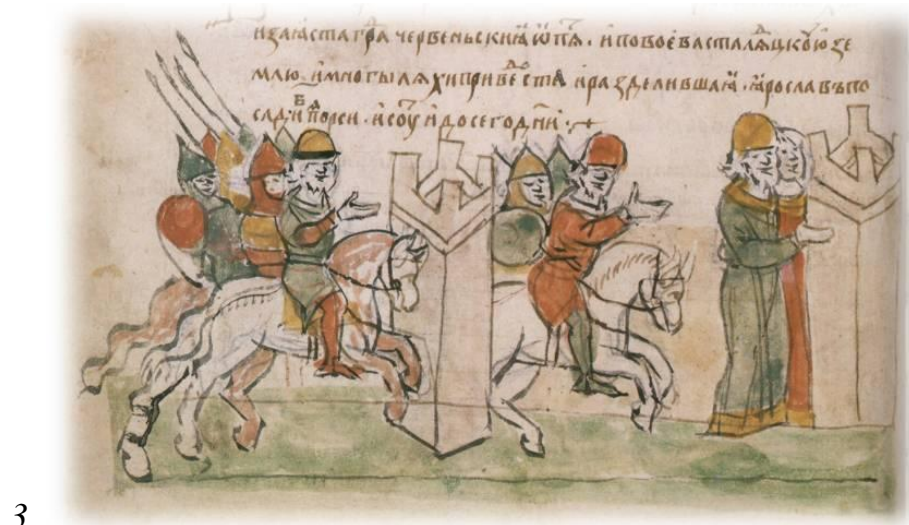 изаꙗста гра червеньскиꙗ ѡпѧ . и повоеваста лѧцкоую зе
млю . и многы лѧхи приведоста и разделившаꙗ . ꙗрославъ по
и порси . и соу и досего дни
3